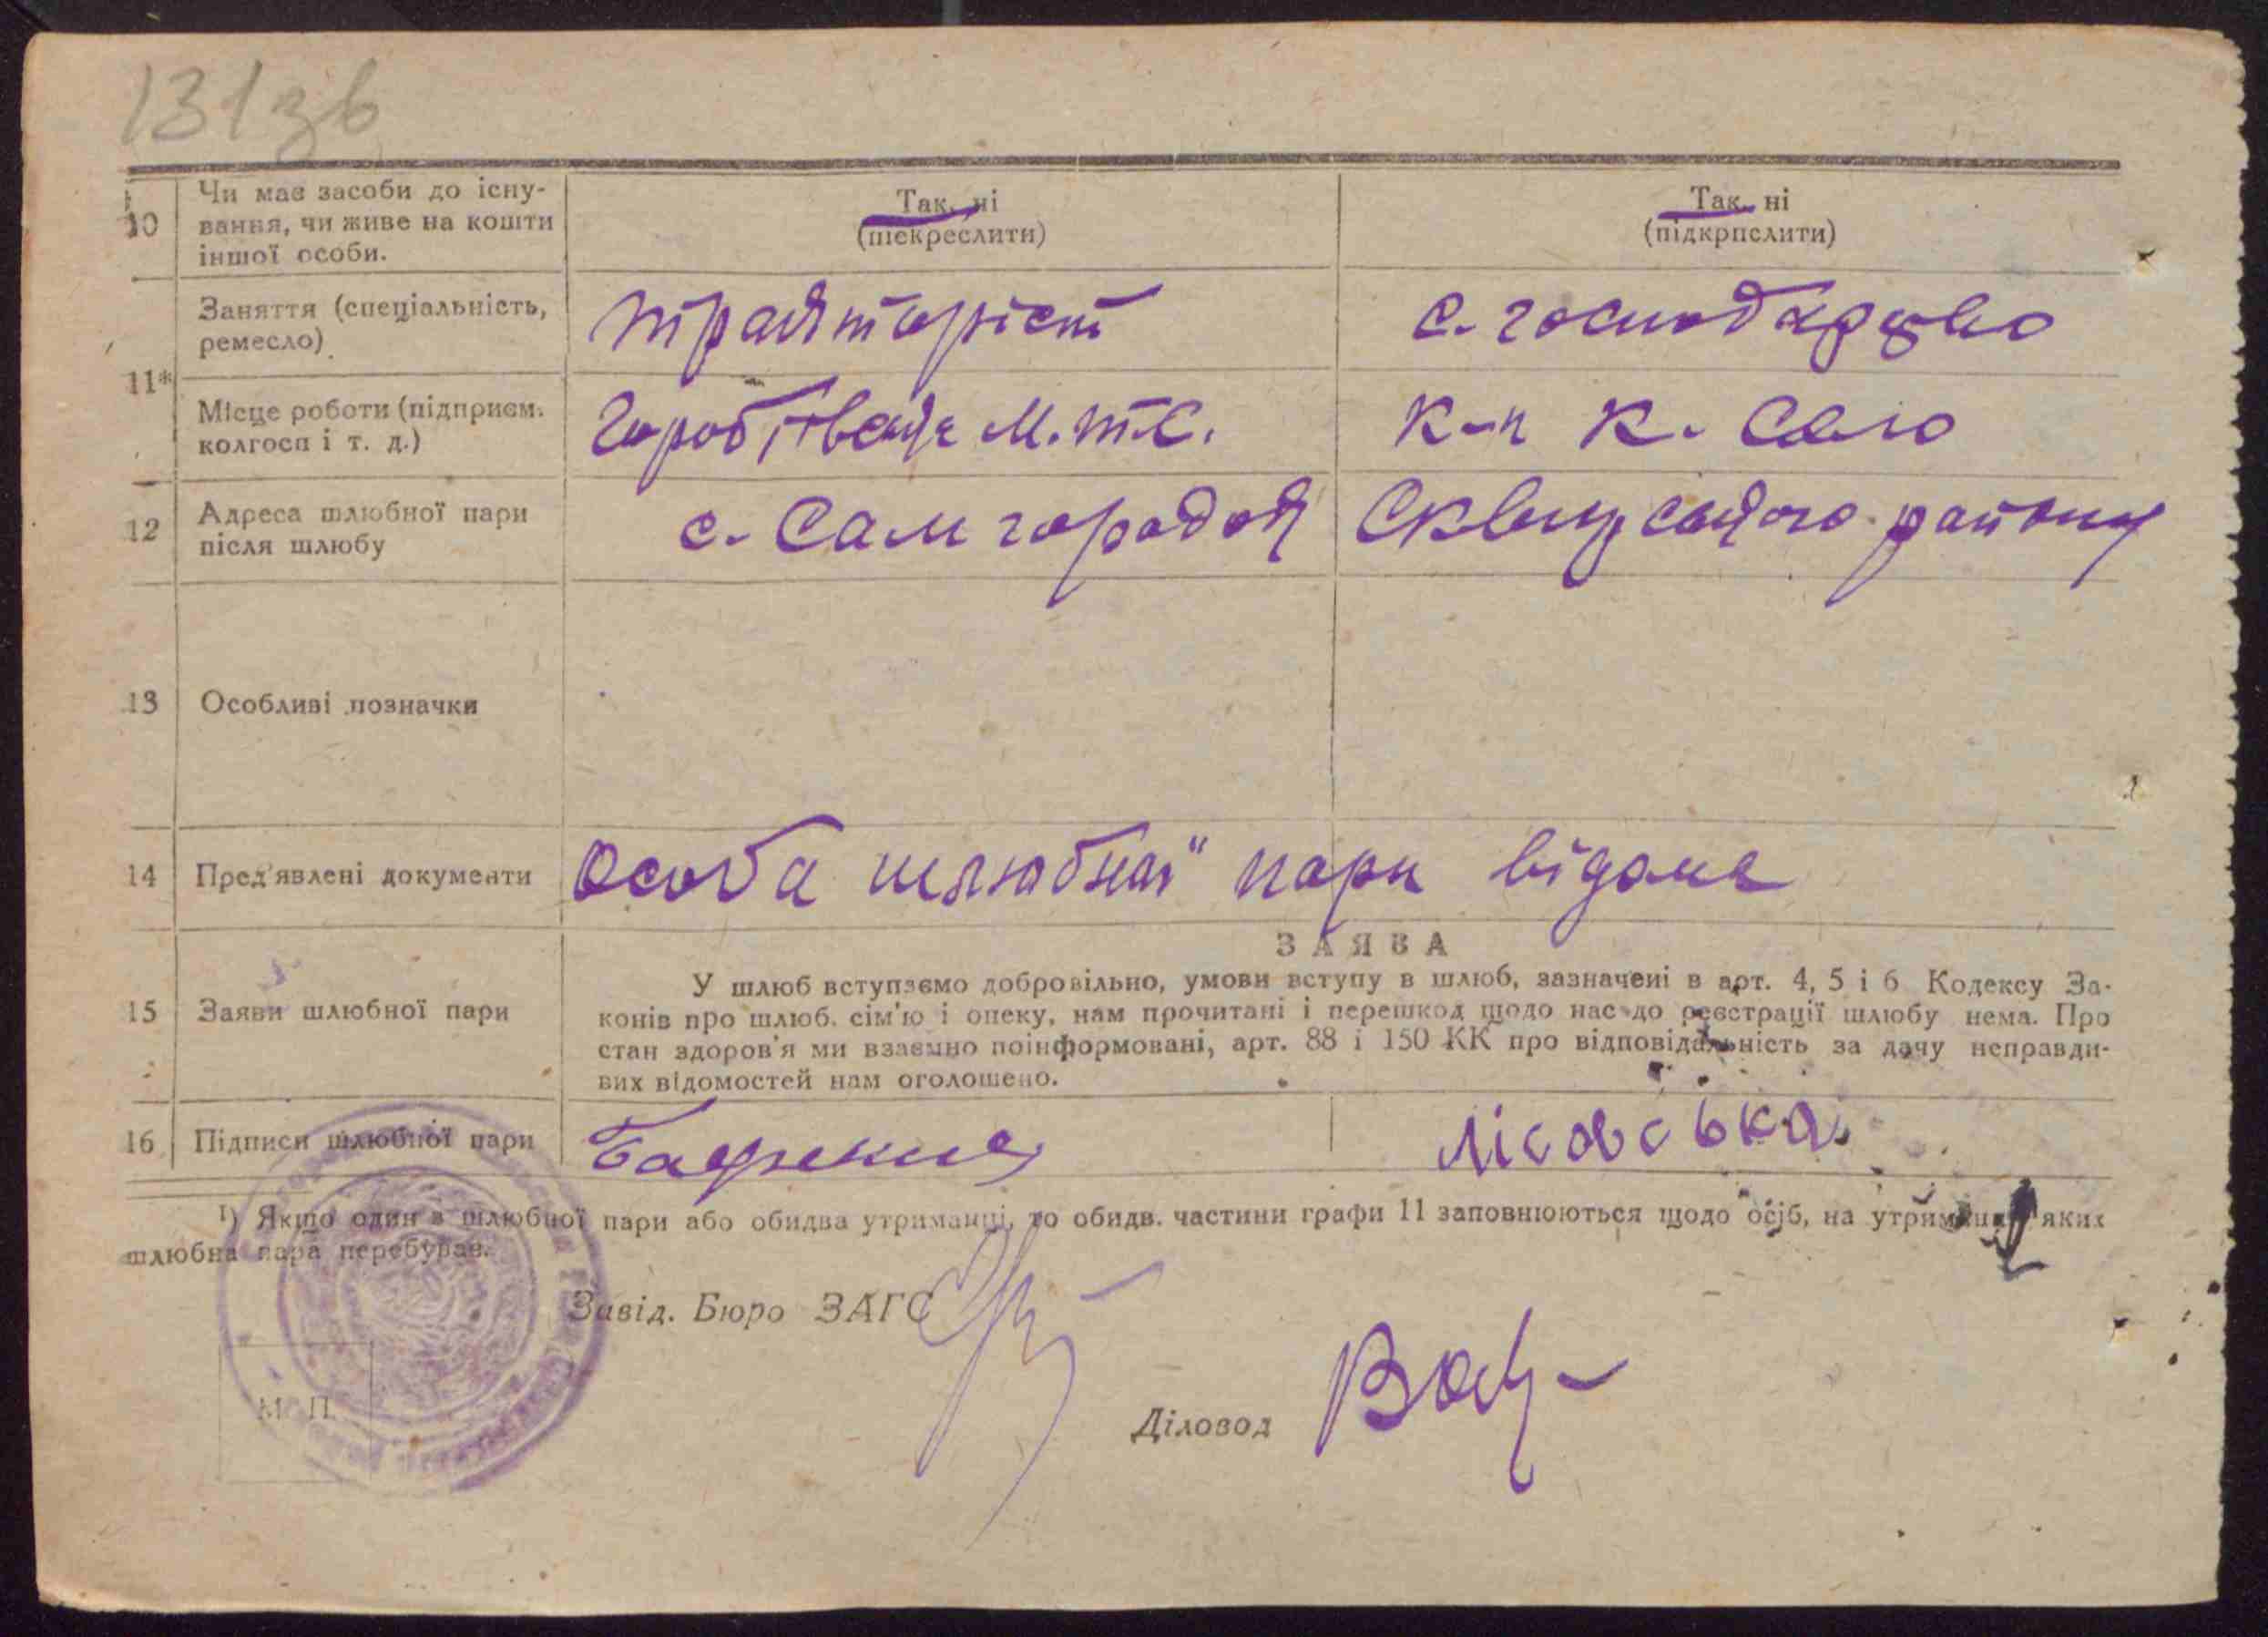 131зв
10 Чи має засоби до існу-
вання, чи живе на кошти
іншої особи.
Так, ні
(підкреслити)
Так, ні
(підкрпслити)
11*
Заняття (спеціальність,
ремесло)
тракторіст
с. господарство
Місце роботи (підприєм.
колгосп і т. д.)
М.Т.С.
к-п К. Село
12 Адреса шлюбної пари
після шлюбу
с. Самгородок Сквирського району
13 Особливі позначки
14 Пред'явлені документи
Особа шлюбної пари відома
ЗАЯВА
15 Заяви шлюбної пари
У шлюб вступаємо добровільно, умови вступу в шлюб, зазначені в арт. 4, 5 і 6 Кодексу За-
конів про шлюб. сім'ю і опеку, нам прочитані і перешкод щодо нас до реєстрації шлюбу нема. Про
стан здоров'я ми взаємно поінформовані, арт. 88 і 150 КК про відповідальність за дачу неправди-
вих відомостей нам оголошено.
16 Підписи шлюбної пари
Лісовська
1) Якщо один з шлюбної пари або обидва утриманці, то обидв. частини графи 11 заповнюються щодо осіб, на утриманні яких
шлюбна пара перебуває.
Завід. Бюро ЗАГС
М. П.
Діловод